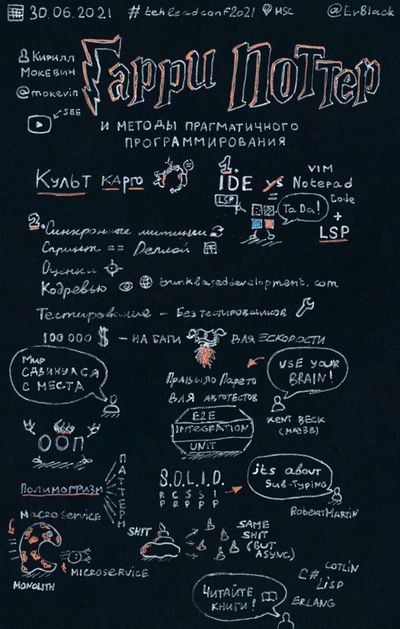 30.06.2021 #techleadconf2021 MSC @ErBlack
Кирилл
Мокевин
@mokevin
Гарри Поттер
и методы прагматичного
программирования
Культ карго
1.
IDE vs Notepad
VIM
Code
+
LSP
LSP
TaDa!
2. Синхронные митинги
Спринт == Релиз
Оценки
Кодревью trunkbaseddevelopment.com
Тестирование – Без тестировщиков
100000 $ – на баги для Ескорости
Мир
сдвинулся
с места
Правило Парето
для автотестов
USE YOUR
BRAIN!
KENT BECK
E2E
INTEGRATION
UNIT
ООП
Полиморфизм
ПАТТЕРН
S.O.L.I.D.
R C S S I
P P P P P
its about
sub-typing
Robert Martin
MACROSERVICE
MICROSERVICE
MONOLITH
SHIT
SAME
SHIT
(BUT
ASYNC)
ЧИТАЙТЕ
КНИГИ!
C#
KOTLIN
LISP
ERLANG